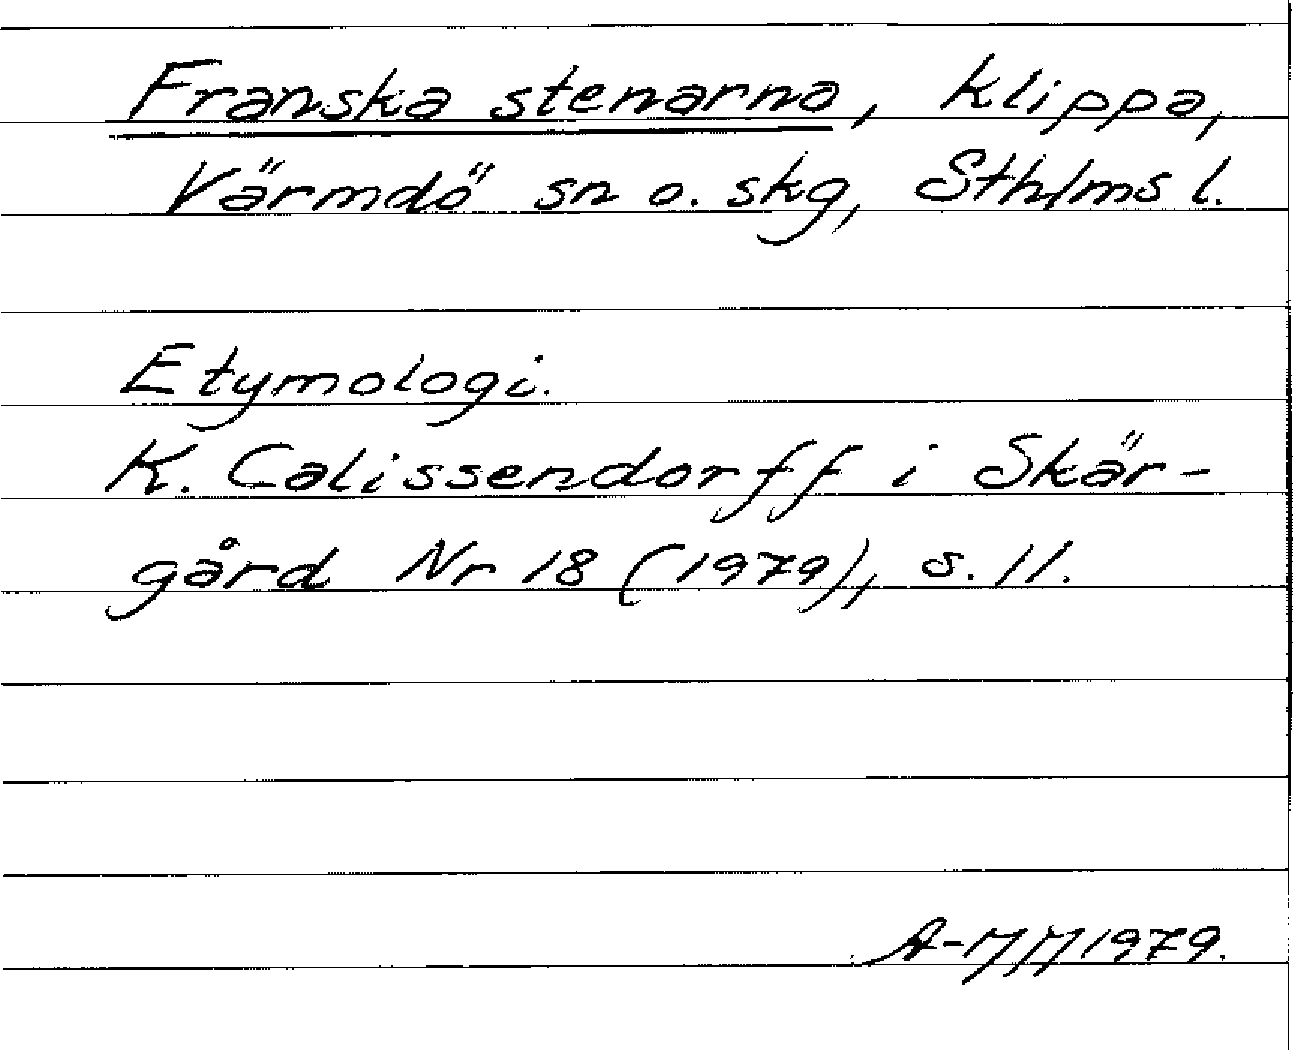 Franska stenarna, klippa,
Värmdö sn o. skg, Sthlms l.
Etymologi.
K. Calissendorff i Skär-
gård Nr 18 (1979), s. 11.
A-MM 1979.